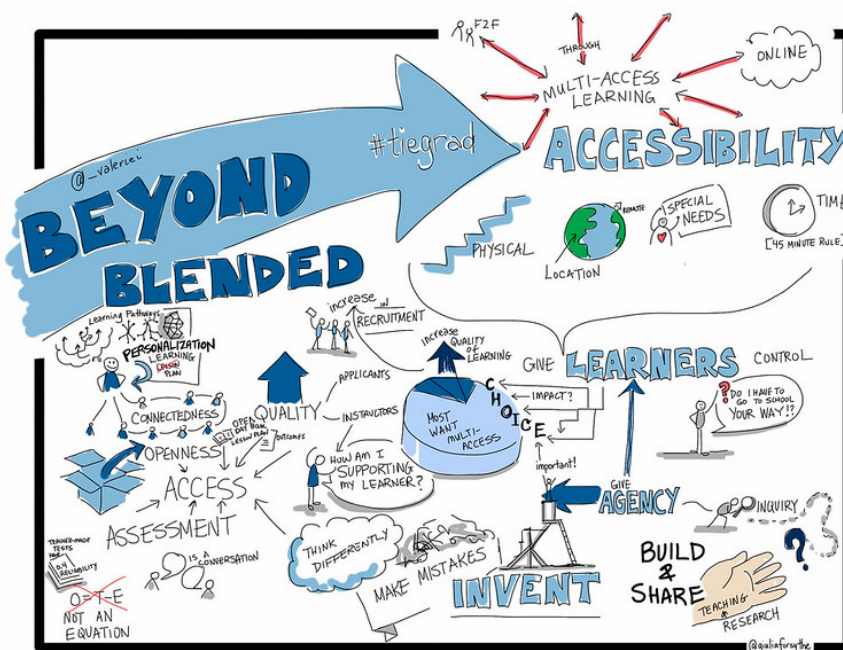 F2F
THROUGH
MULTI-ACCESS
LEARNING
ONLINE
@_valeriei
#tiegrad
BEYOND
BLENDED
ACCESSIBILITY
PHYSICAL
LOCATION
REMOTE
SPECIAL
NEEDS
TIME
[45 MINUTE RULE]
Learning Pathways
PERSONALIZATION
LEARNING
PLAN
CONNECTEDNESS
OPENNESS
ACCESS
ASSESSMENT
TEACHER-MADE
TESTS
0.4
RELIABILITY
O=T-E
NOT AN
EQUATION
IS A
CONVERSATION
increase IN
RECRUITMENT
QUALITY
OPEN
DAY BOOK
LESSON PLAN
OUTCOMES
APPLICANTS
INSTRUCTORS
HOW AM I
SUPPORTING
MY LEARNER?
increase
QUALITY
OF
LEARNING
MOST
WANT
MULTI-
ACCESS
CHOICE
IMPACT?
important!
GIVE LEARNERS CONTROL
? DO I HAVE TO
GO TO SCHOOL
YOUR WAY!?
GIVE
AGENCY
INQUIRY
?
THINK
DIFFERENTLY
MAKE MISTAKES
INVENT
BUILD
&
SHARE
TEACHING
RESEARCH
@giuliaforsythe